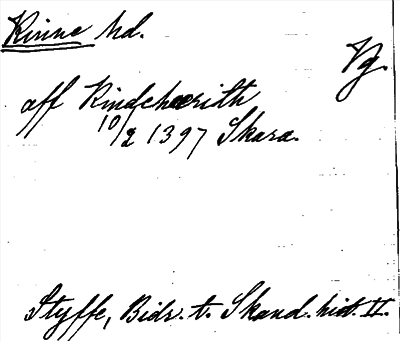 Kinne hd.
Vg.
aff Kindehærith
10/2 1397 Skara.
Styffe, Bidr. t. Skand. hist. II.